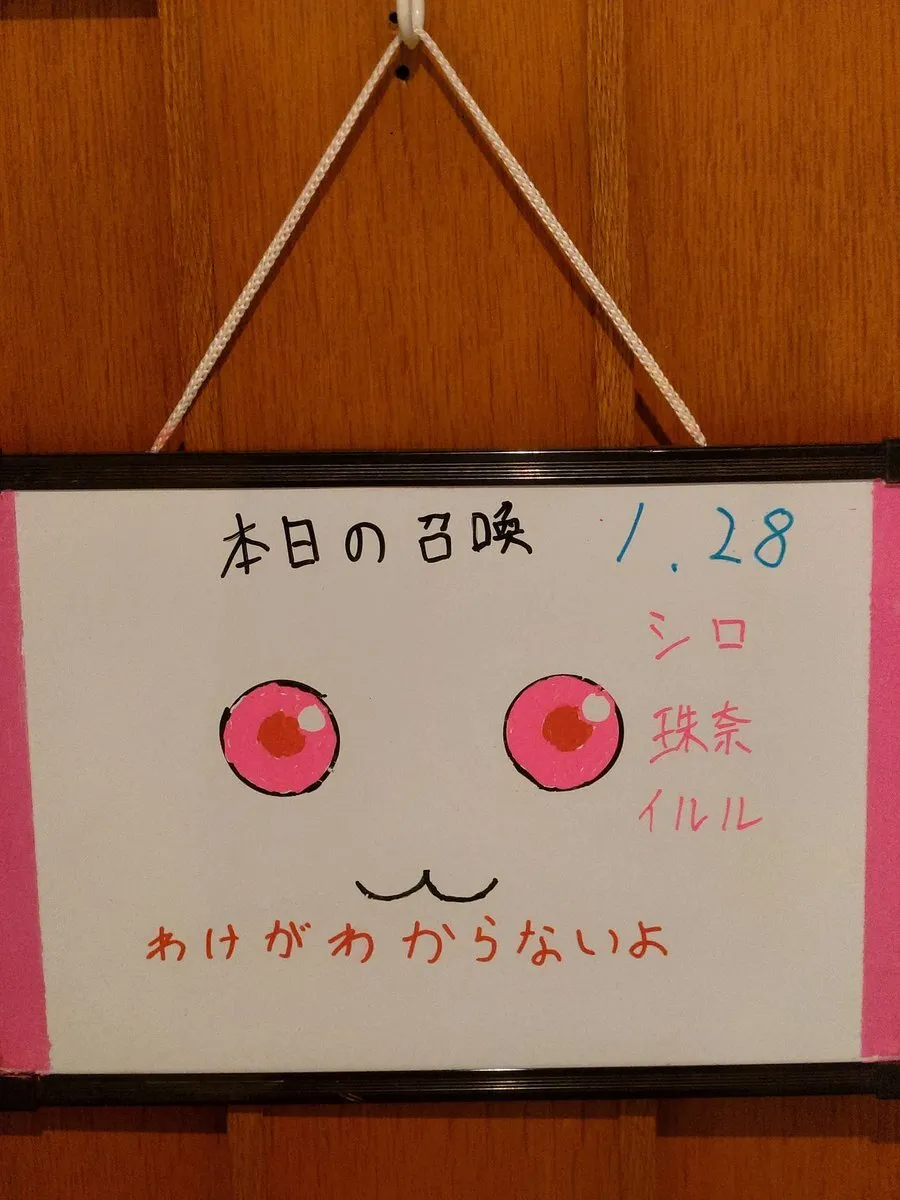 本日の召喚 1.28
シロ
珠奈
イルル
わけがわからないよ